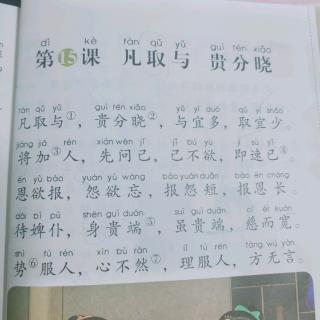 dì kè fán qǔ yǔ guì fēn xiǎo
第15课 凡取与 贵分晓
fán qǔ yǔ guì fēn xiǎo yǔ yí duō qǔ yí shǎo
凡取与①，贵分晓②，与宜多，取宜少。
jiāng jiā rén xiān wèn jǐ jǐ bú yù jí sù yǐ
将加③人，先问己，己不欲，即速已④。
ēn yù bào yuàn yù wàng bào yuàn duǎn bào ēn cháng
恩欲报，怨欲忘，报怨短，报恩长。
dài bì pú shēn guì duān suī guì duān cí ér kuān
待婢仆，身贵端⑤，虽贵端，慈而宽。
shì fú rén xīn bù rán lǐ fú rén fāng wú yán
势⑥服人，心不然⑦，理服人，方无言。